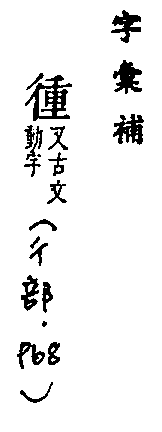 字彙補
徸
又古文
動字
(彳部・P68)